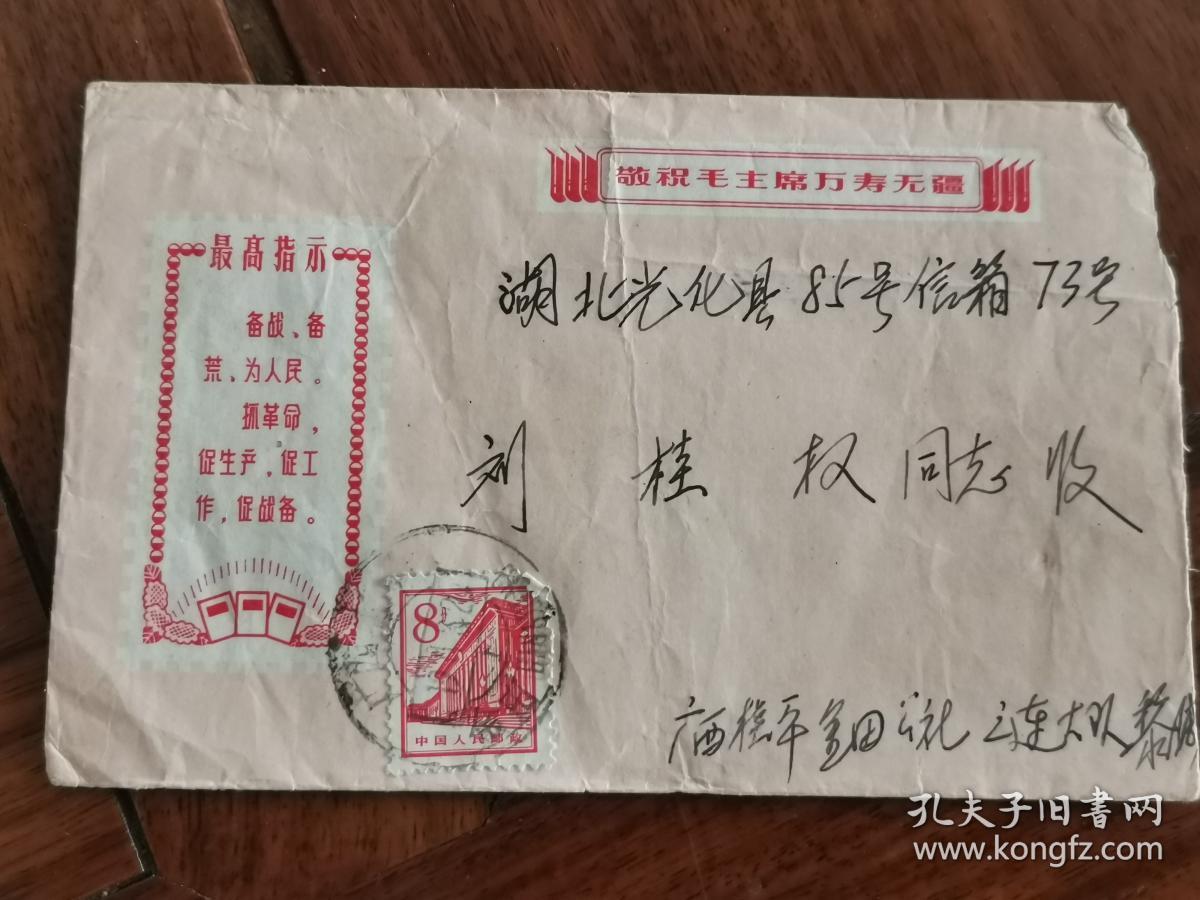 敬祝毛主席万寿无疆
最高指示
备战、备
荒、为人民。
抓革命，
促生产，促工
作，促战备。
湖北光化县85号信箱73号
刘桂权同志收
8分
中国人民邮政
广西桂平金田公社三连大队黎
孔夫子旧书网
www.kongfz.com